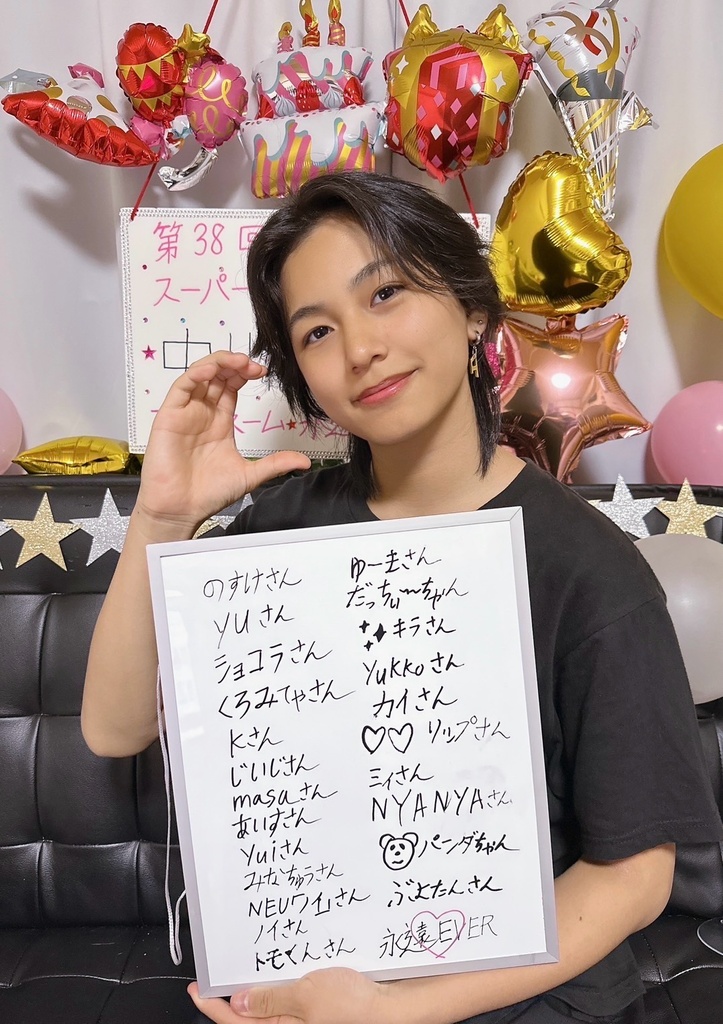 第38回
スーパー
のすけさん
yuさん
ショコラさん
くろみてゃさん
Kさん
じいじさん
masaさん
あいすさん
yuiさん
みなちゅうさん
NEUワイさん
ノイさん
トモくんさん
ゆーまさん
だっちぃ〜ちゃん
キラさん
yukkoさん
カイさん
♡♡リップさん
ミィさん
NYANYAさん
パンダちゃん
ぷよたんさん
永遠EVER